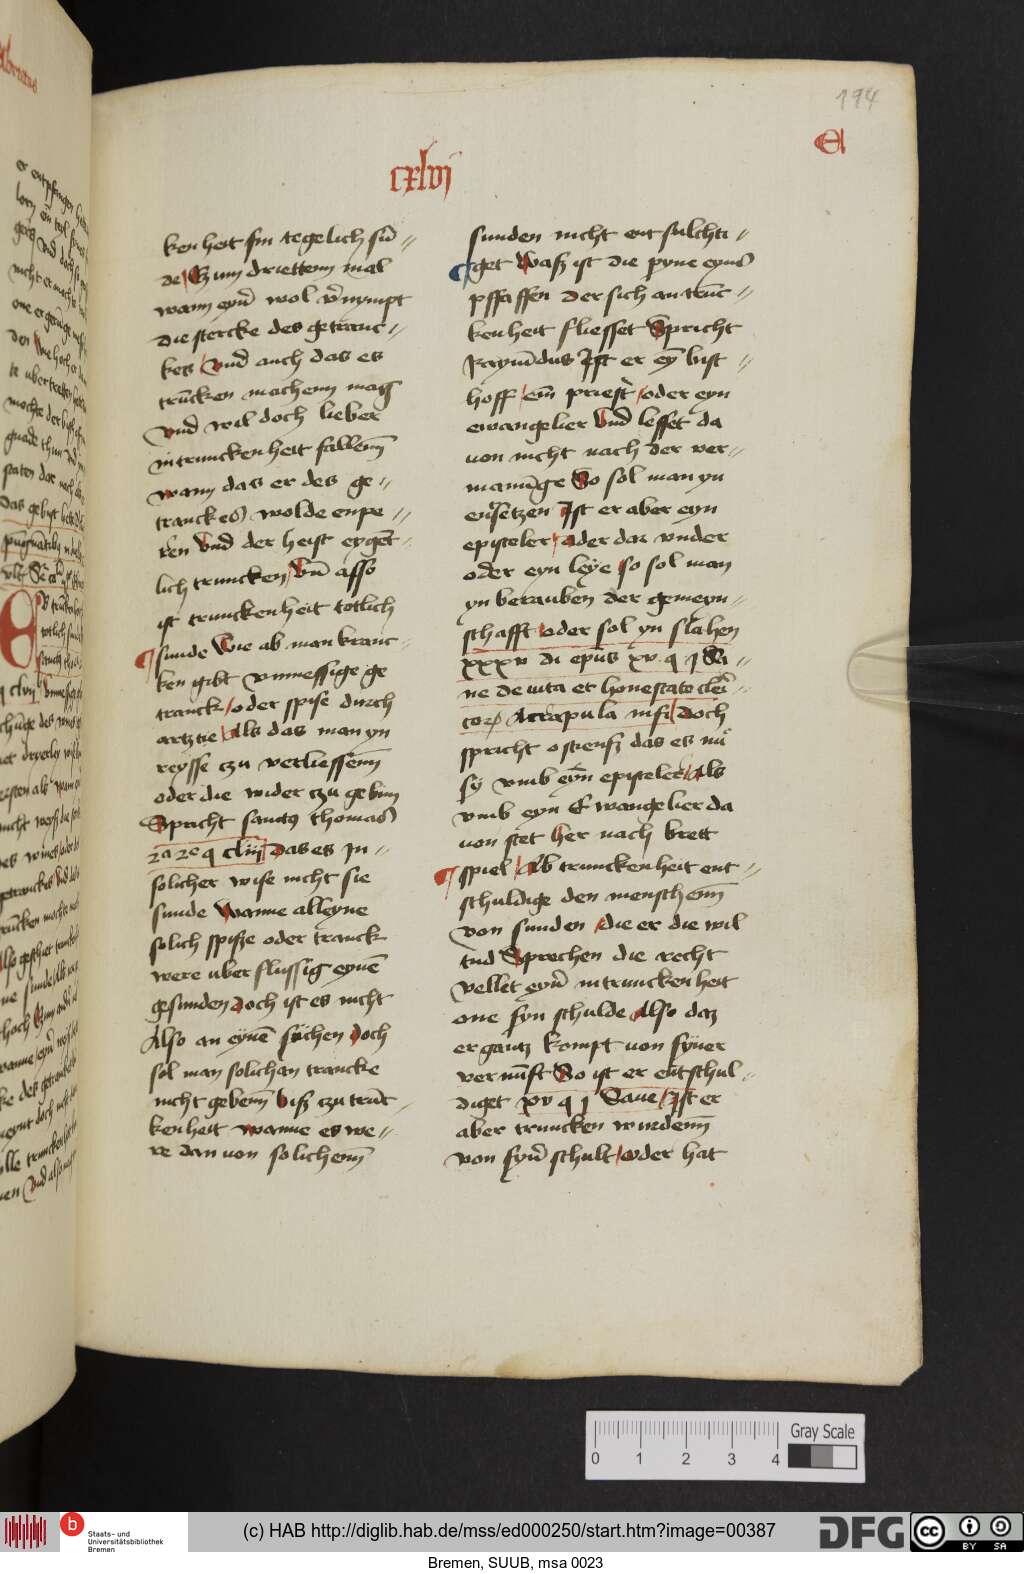 194
A
cxlvj
kenheit sin tegelich sū⸗
de Czum driettenn mal
wann eyn̄ wol v̄nympt
die stercke des getranc⸗
kes Vnd auch das es
trūcken machenn mag
vnd wil doch lieber
in trunckenheit fallenn̄
wann das er des ge⸗
tranckes wolde enpe⸗
rēn Vnd der heist eygēt⸗
lich truncken Vn̄ asso
ist trunckenheit totlich
sunde Wie ab man kranc⸗
ken gibt vnmessige ge
tranck oder spise durch
artztie Als das man yn
reysse czu verliessenn̄
oder die wider czu gebinn
Spricht sanctus thomas
2a 2e q cliij Das es In⸗
solicher wise nicht sie
sunde Wanne alleyne
solich spisze oder tranck
were uberflussig eynē
gesunden Doch ist es nicht
Also an eynē suchen Doch
sol man solichan trancke
nicht gebenn̄ bisz czu trūc⸗
kenheit Wanne es we⸗
re dan von solichenn̄
sunden nicht entsulchti⸗
get Wasz ist die pyne eyns
pffaffen der sich an trūc⸗
kenheit fliesset Spricht
Raymūdus Ist er eȳ bist⸗
hoff ein priest̄ oder eyn
ewangelier Vnd lesset da
von nicht nach der ver⸗
manūge So sol man yn
entsetzen Ist er aber eyn
episteler oder dar vnder
oder eyn leye so sol man
yn berauben der gemeyn⸗
schafft oder sol yn slahen
xxxv di epus xv q j Sa⸗
ne De uita et honestato cleī⸗
corꝝ A crapula in fi Doch
spricht ostiensz das es nū
sy vmb eyn episteler Als
vmb eyn Ewangelier da
von stet her nach brett
spiel Ab trunckenheit ent⸗
schuldige den menschenn̄
von sunden die er die wil
tud Sprechen die recht
vellet eyn̄ in trunckenheit
one syn schulde Also daz
er gantz kompt von syner
vernūft So ist er entschul⸗
diget xv q j Sane Ist er
aber truncken wurdenn̄
von syn̄ schult oder hat
0 1 2 3 4
Gray Scale
b
Staats- und
Universitätsbibliothek
Bremen
(c) HAB http://diglib.hab.de/mss/ed000250/start.htm?image=00387
DFG
cc BY SA
Bremen, SUUB, msa 0023